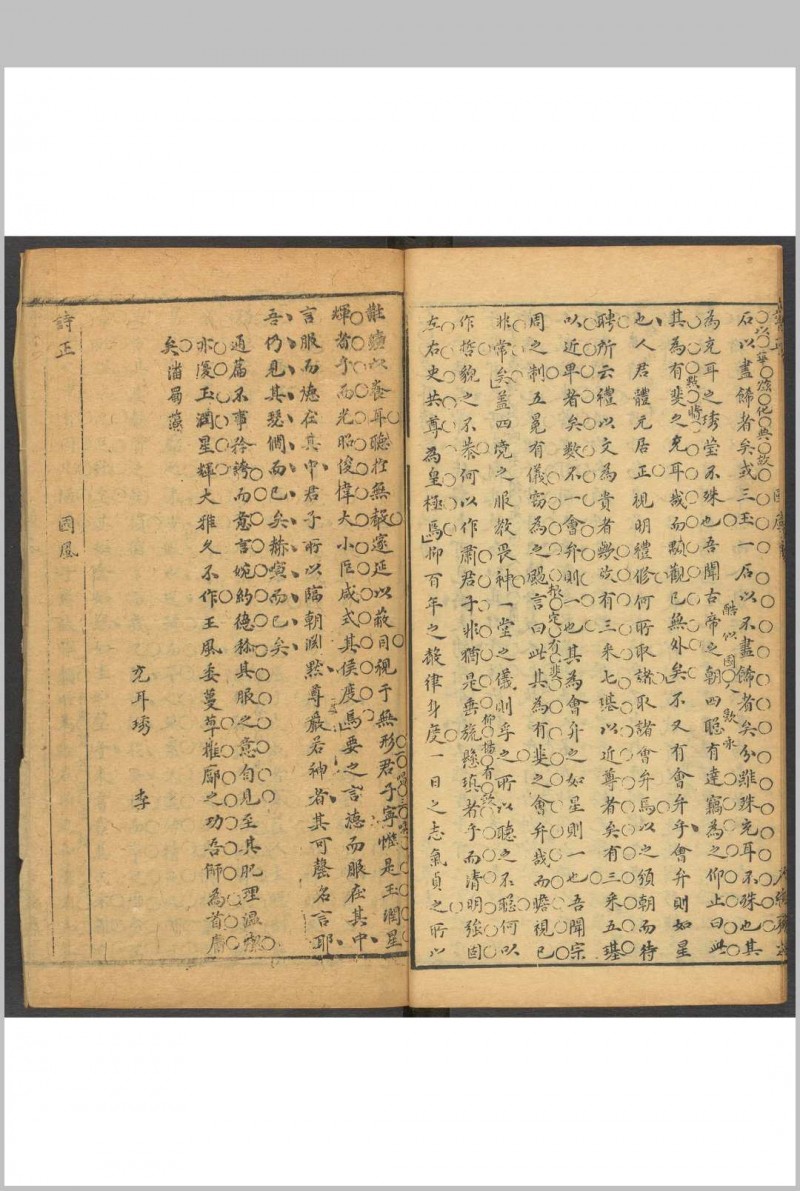 石以盡飾者矣或三玉一石以不盡飾者矣分雖殊充耳不殊也其
為充耳之琇瑩不殊也吾聞古帝之朝四聰有達竊為之仰止曰此
其為有斐之充耳哉而顯觀已無外矣不又有會弁乎會弁則如星
也人君體元居正視明禮修何所取諸取諸會弁焉以之頒朝而待
聘所云禮以文為貴者歟故有三采七璂以近尊者矣有三采五璂
以近卑者矣數不一會弁則一也其為會弁之如星則一也吾聞宗
周之制五冕有儀竊為之颺言曰此其為有斐之會弁哉而瞻視已
非常矣蓋四境之服教畏神一堂之儀則孚之所以聽之不聰何以
作哲貌之不恭何以作肅君子非猶是垂旒懸瑱者乎而清明強固
左右史共尊為皇極焉抑百年之聲律身度一日之志氣貞之所以
黈纊以養耳聰性無邃延以蔽目視于無形君子寧惟是玉潤星
輝者乎而光昭俊偉大小臣咸式其侯度焉要之言德而服在其中
言服而德在其中君子所以臨朝淵默尊嚴若神者其可罄名言耶
吾仍見其瑟僩而已矣赫喧而已矣
通篇不事矜誇而意言婉約德稱其服之意自見至其肥理濕潔
亦復玉潤星輝大雅久不作王風委蔓草推廓之功吾師為首席
矣 淄局藻
充耳琇 李
詩正 國風
酷似國人歟永